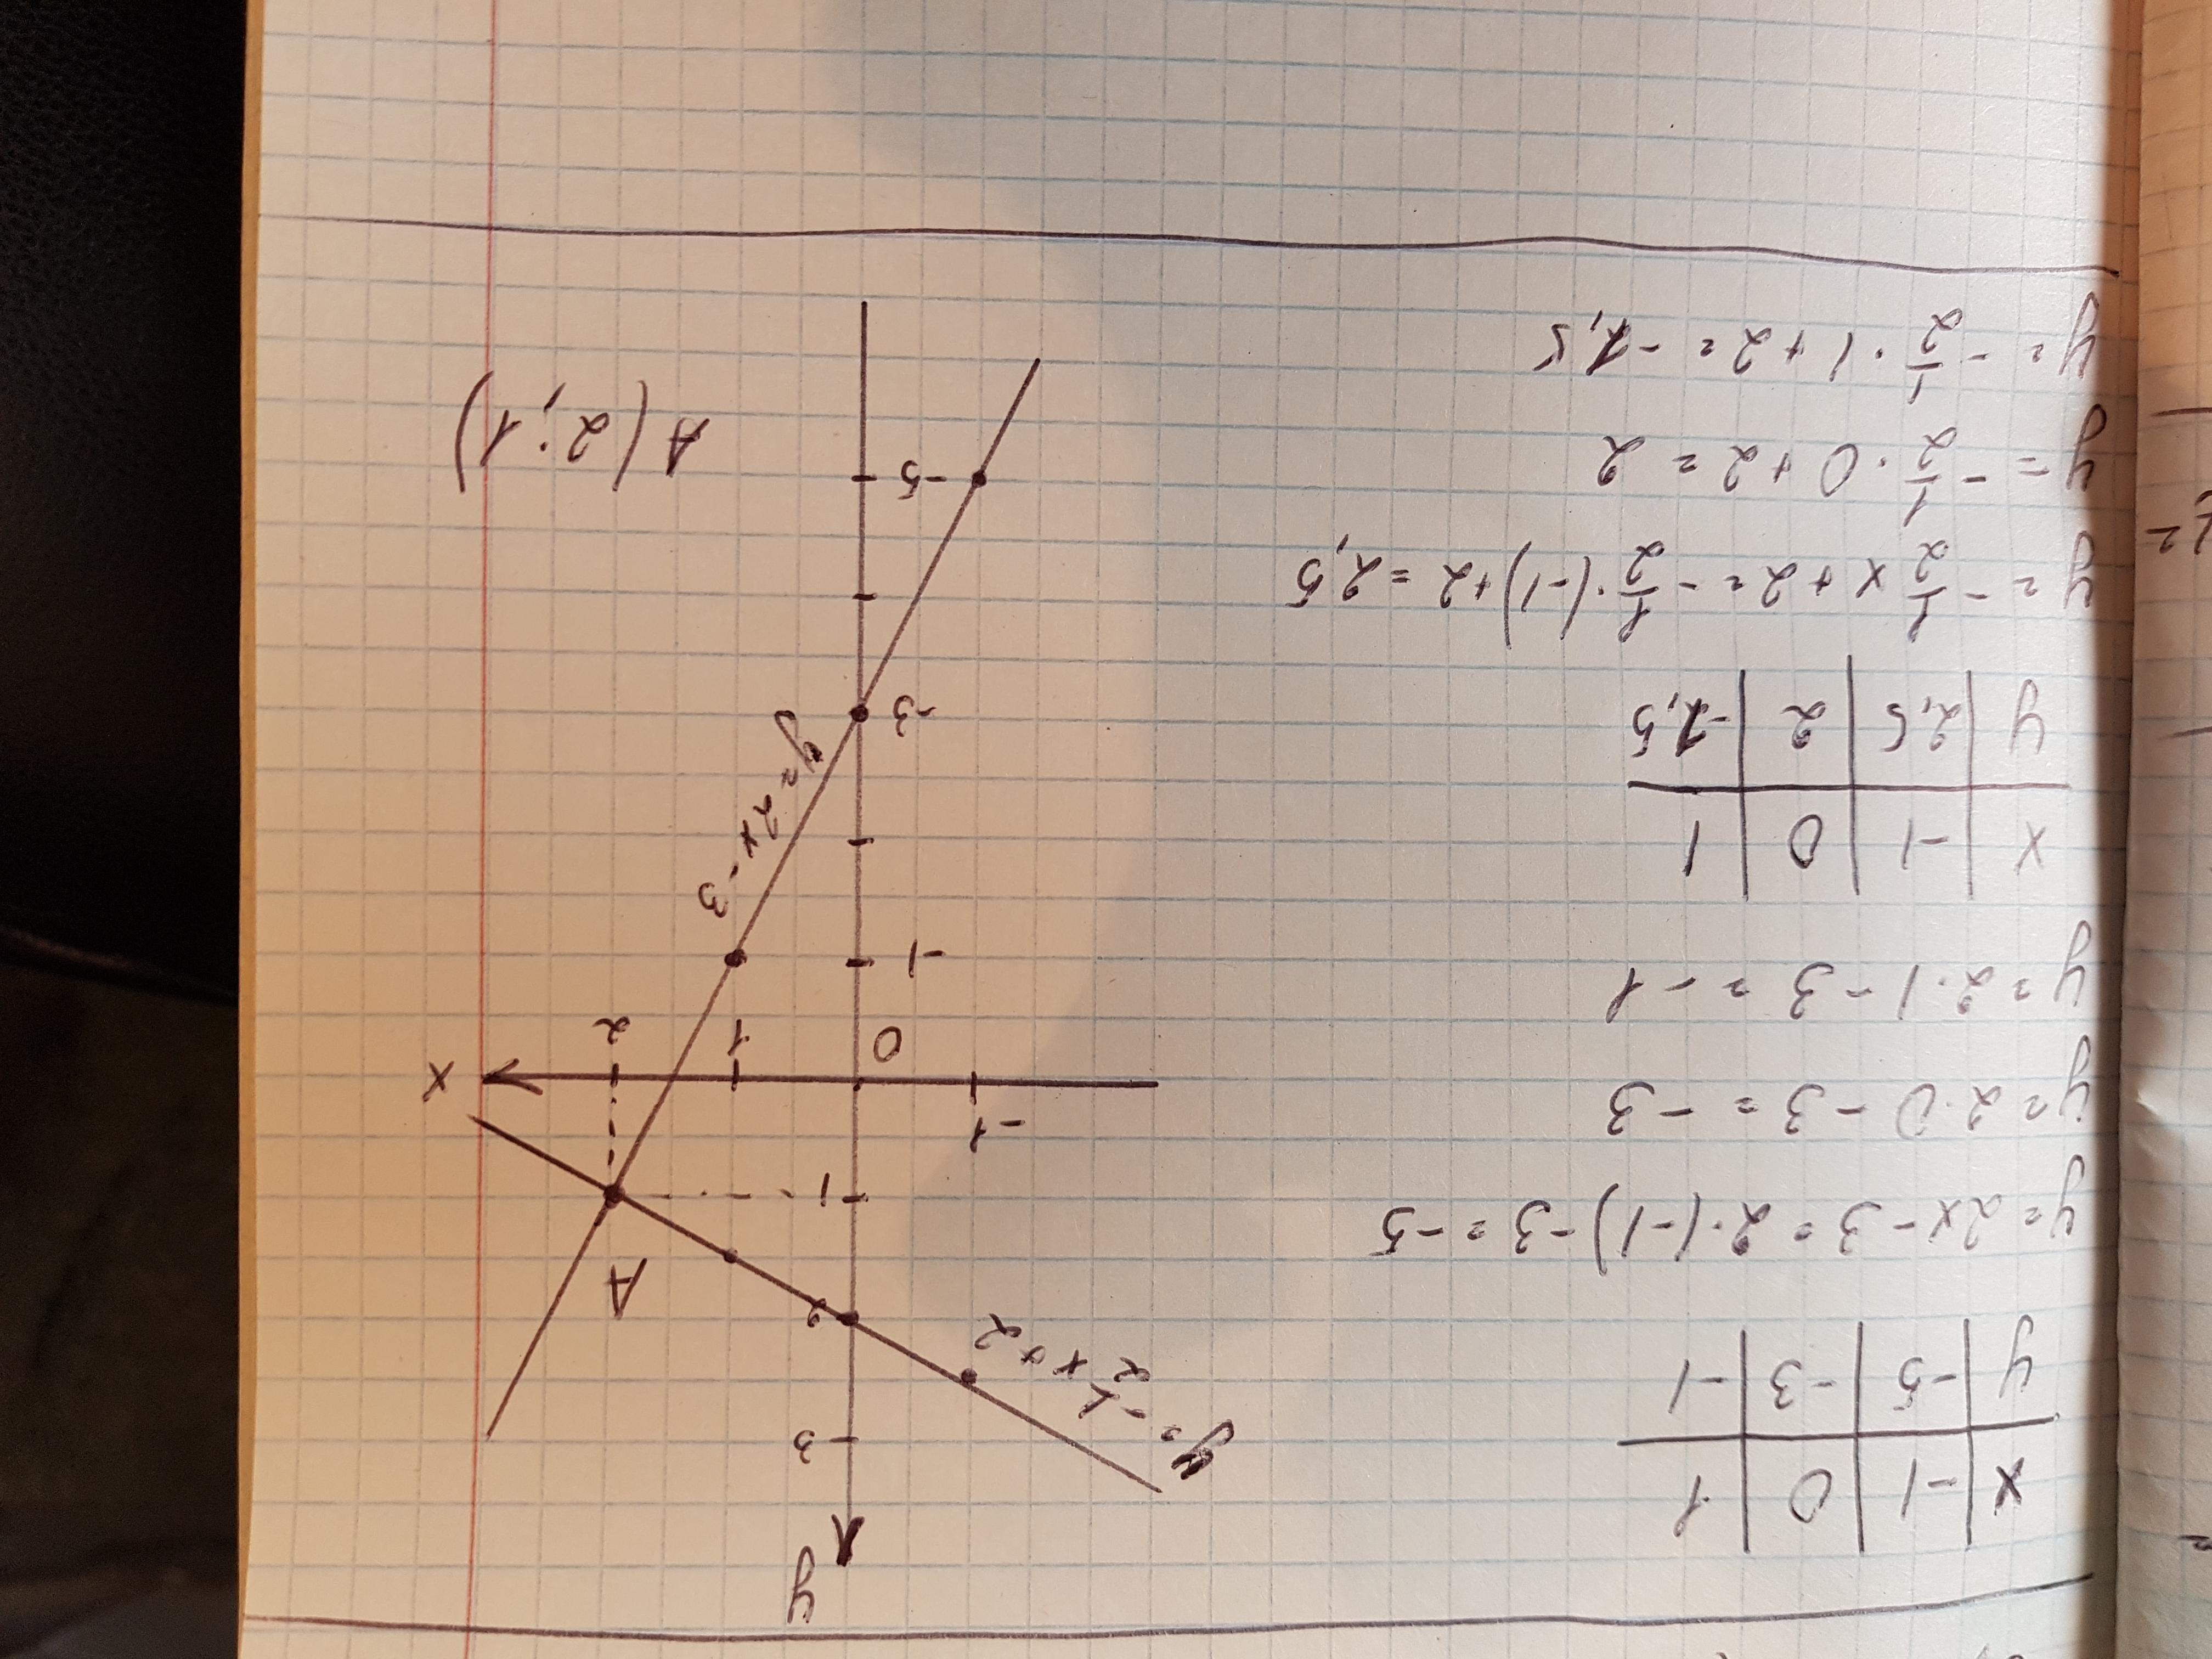 x | -1 | 0 | 1
y | -5 | -3 | -1
y = 2x - 3 = 2·(-1) - 3 = -5
y = 2·0 - 3 = -3
y = 2·1 - 3 = -1
x | -1 | 0 | 1
y | 2,5 | 2 | -1,5
y = -1/2 x + 2 = -1/2·(-1) + 2 = 2,5
y = -1/2·0 + 2 = 2
y = -1/2·1 + 2 = -1,5
y
3
y = -1/2 x + 2
2
A
1
-1
x
0
1
2
-1
y = 2x - 3
-3
-5
A(2; 1)